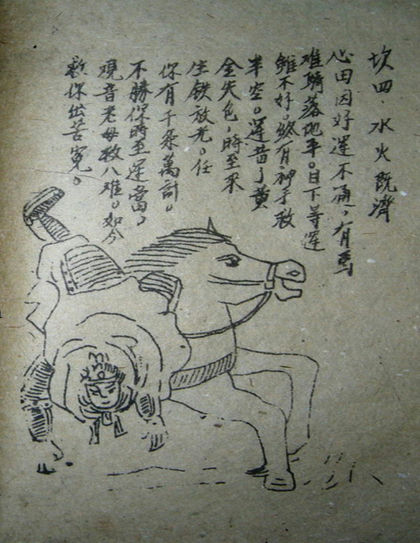 坎四·水火既濟
心田因好運不通，有馬
难騎落地平。日下等運
雖不好。終有神手救
半空。運昔了黃
金失色，時至來
生铁放光。任
你有千朵萬計。
不勝你時至運當，
观音老母救八难。如今
救你出苦寃。